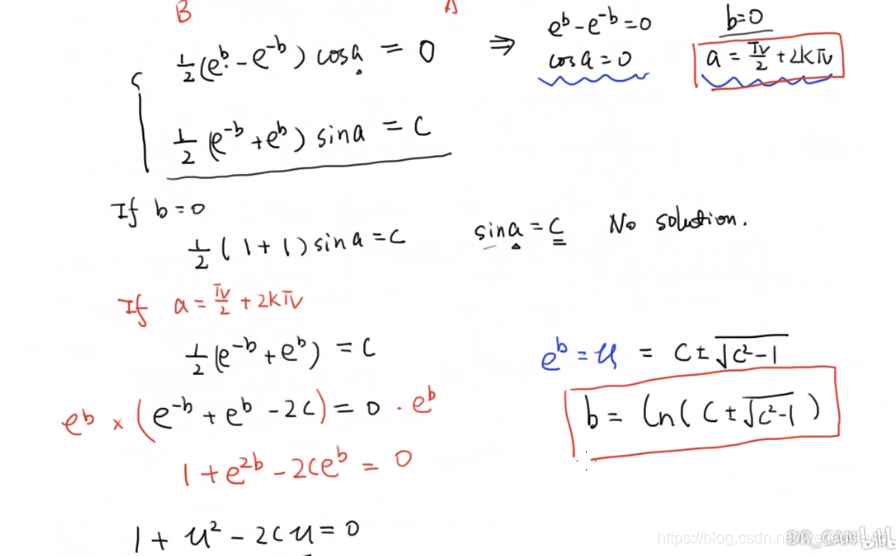 B
A
½(e^b - e^-b) cos a = 0 ⇒ e^b - e^-b = 0 b=0
cos a = 0 a = π/2 + 2kπ
½(e^-b + e^b) sin a = C
If b=0
½(1+1) sin a = C sin a = C No solution.
If a = π/2 + 2kπ
½(e^-b + e^b) = C e^b = u = C ± √(C²-1)
e^b × (e^-b + e^b - 2C) = 0 · e^b b = ln(C ± √(C²-1))
1 + e^2b - 2Ce^b = 0
1 + u² - 2Cu = 0